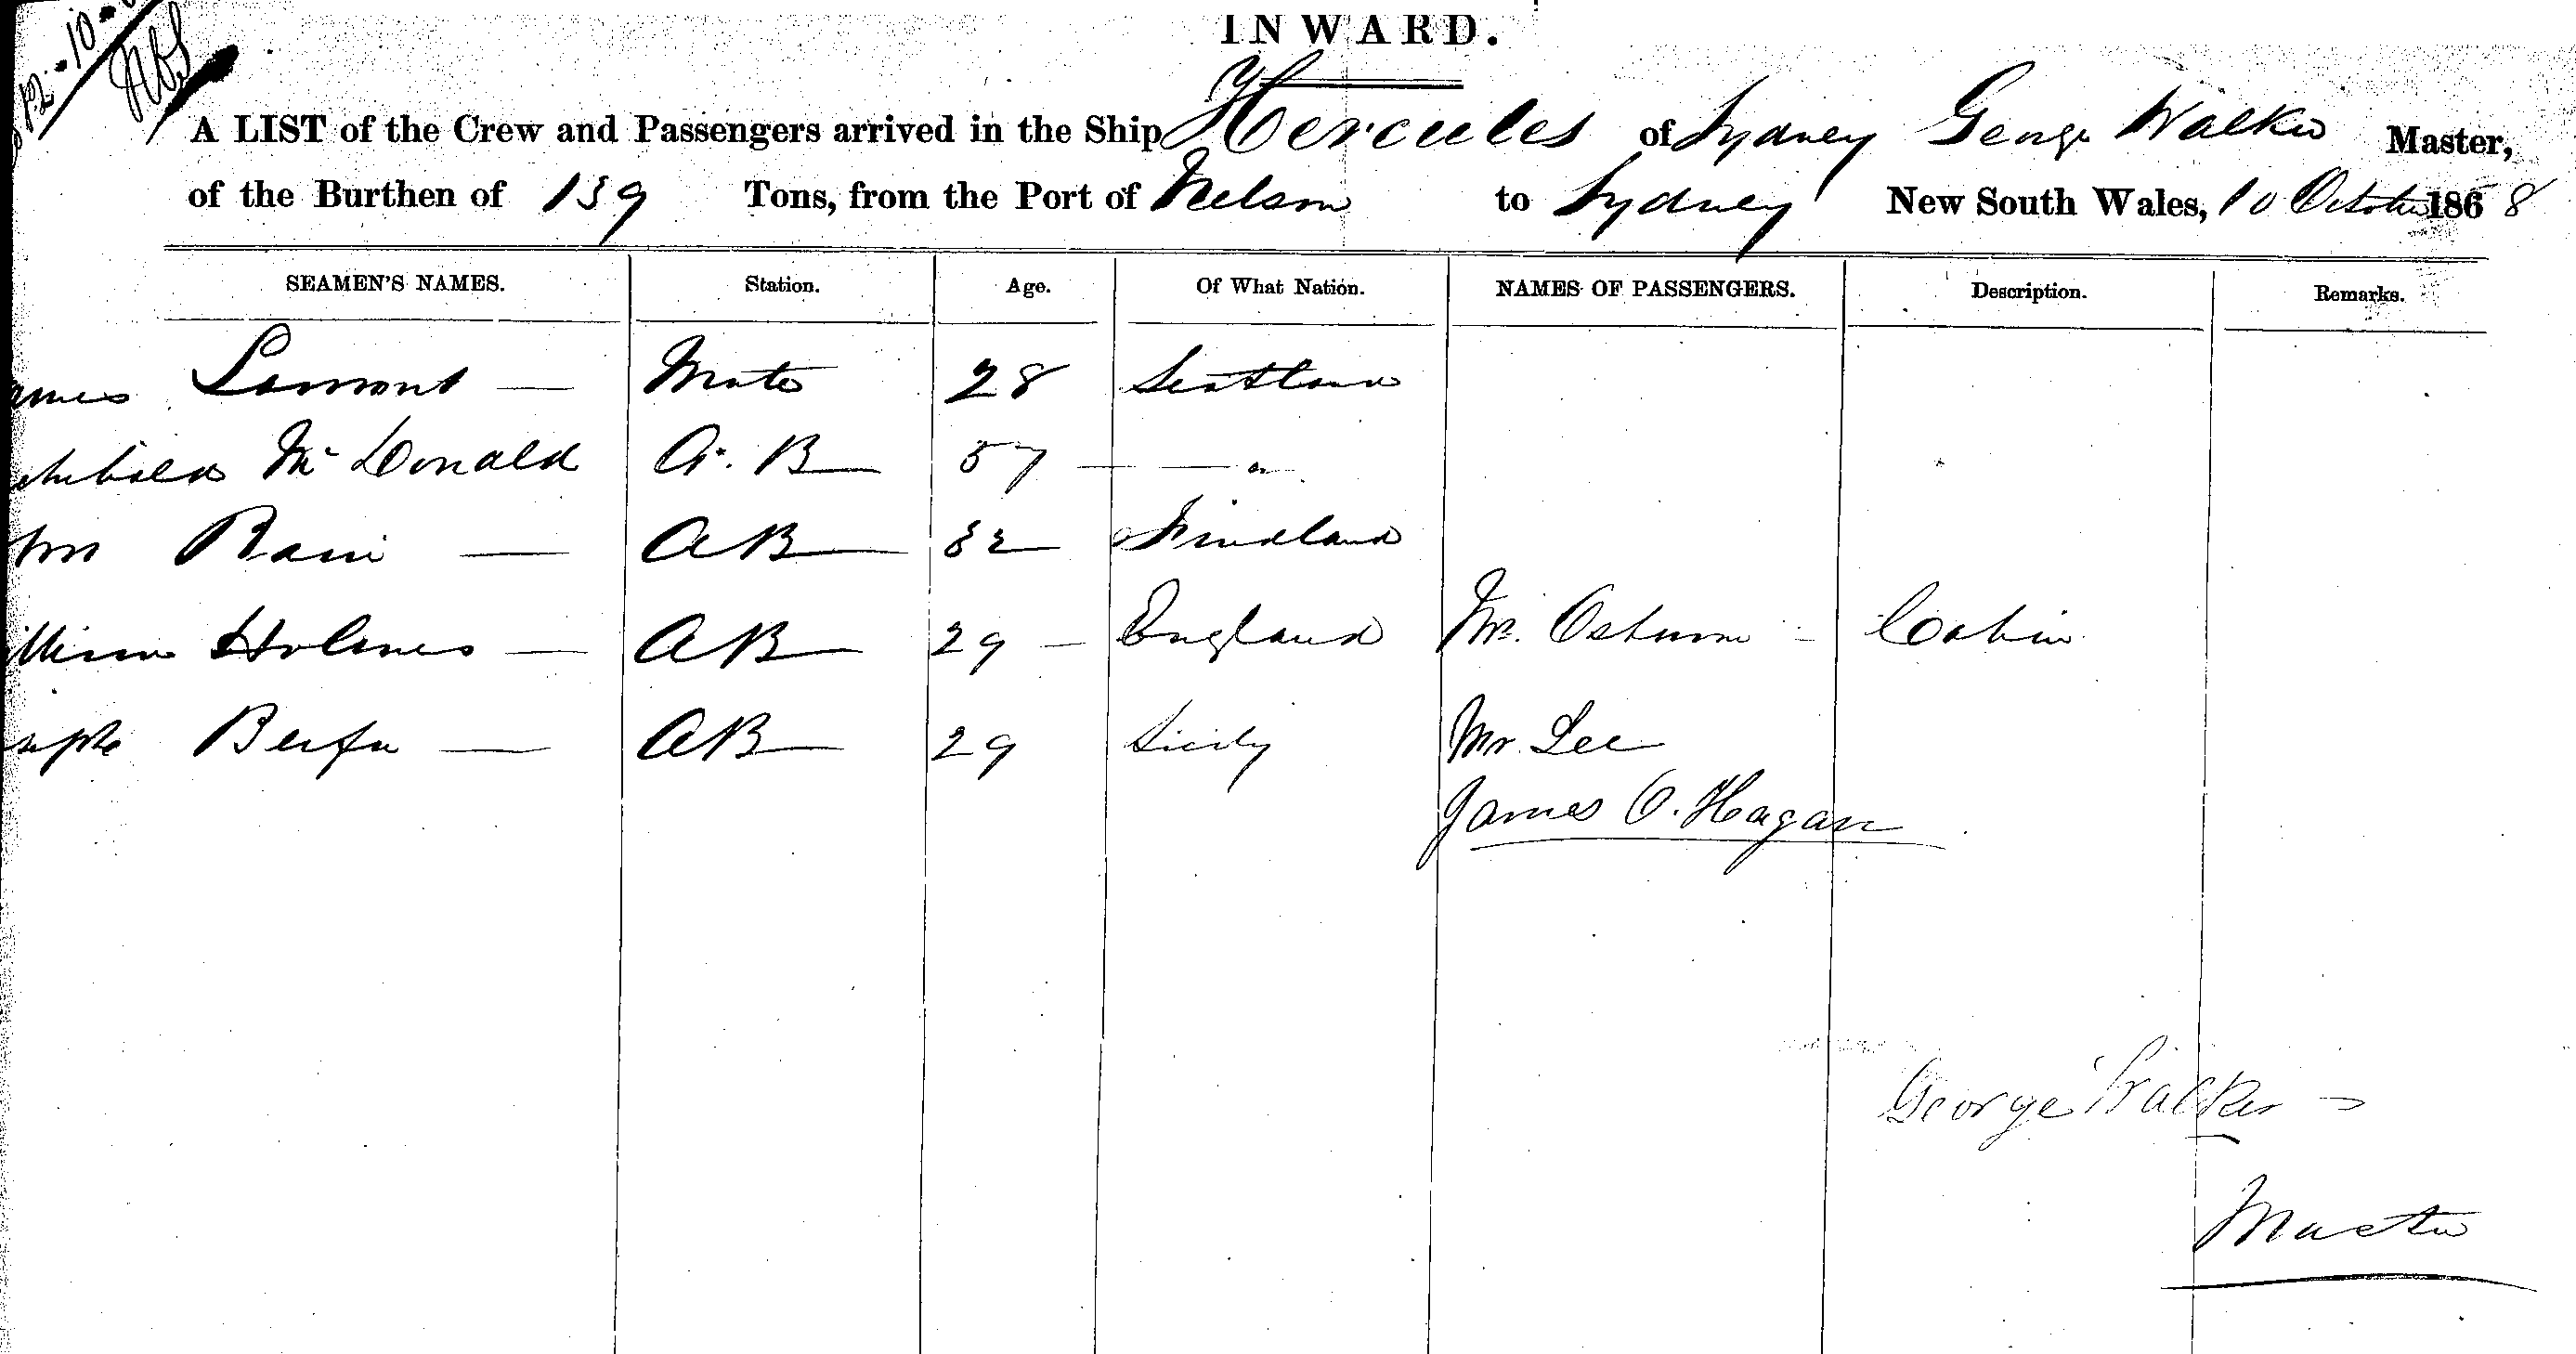 12-10-
INWARD.
A LIST of the Crew and Passengers arrived in the Ship Hercules of Sydney George Walker Master,
of the Burthen of 139 Tons, from the Port of Nelson to Sydney New South Wales, 10 October 1868
SEAMEN'S NAMES. Station. Age. Of What Nation. NAMES OF PASSENGERS. Description. Remarks.
ames Lamont — Mate 28 Scotland
chibald Mc Donald A. B 57 — — "
ohn — AB 32 Findland
illiam Holmes — AB 29 — England Mr. Osburn - Cabin
— AB 29 Sicily Mr. Lee
James O. Hagan
George Walker
Master